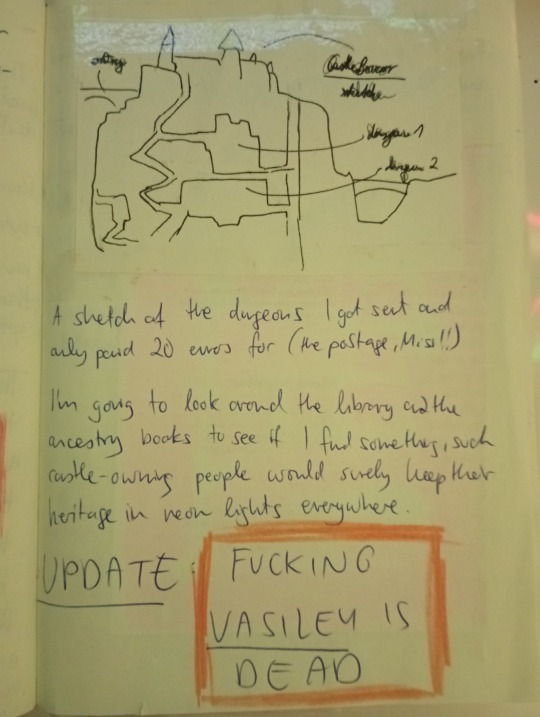 Castle
dungeon 1
dungeon 2
A sketch of the dugeons I got sent and
only paid 20 euros for (the postage, Miss!!)
I'm going to look around the library and the
ancestry books to see if I find something, such
castle-owning people would surely keep their
heritage in neon lights everywhere.
UPDATE: FUCKING
VASILEY IS
DEAD